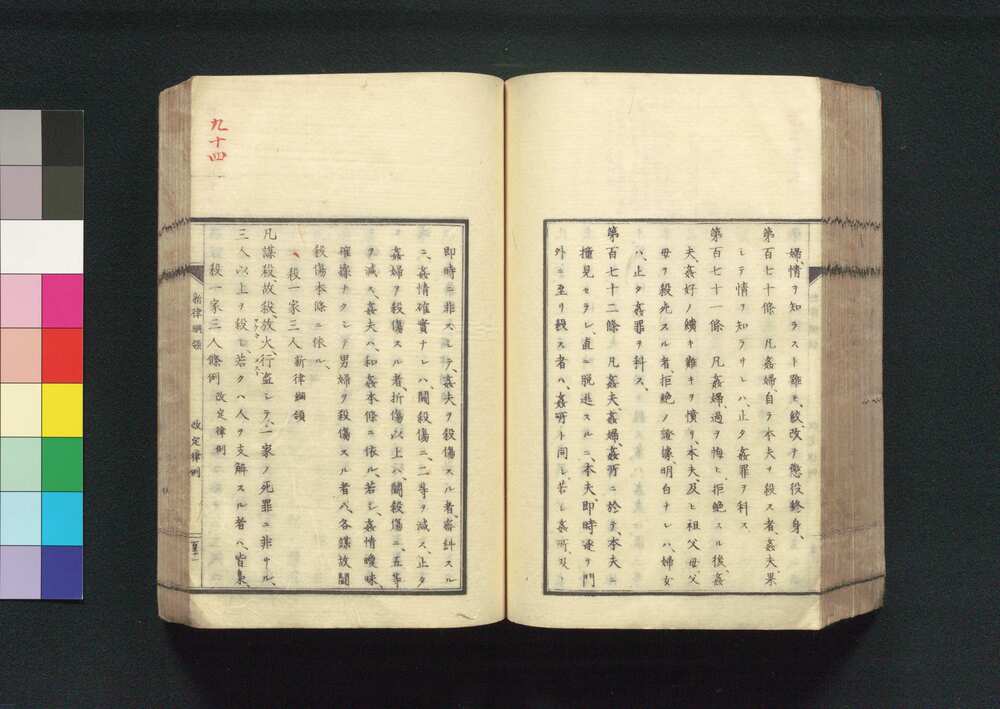 婦、情ヲ知ラスト雖ヒ、絞、改テ懲役終身、
第百七十條 凡姦婦、自ラ本夫ヲ殺ス者、姦夫、果
シテ情ヲ知ラサレハ、止タ姦罪ヲ科ス、
第百七十一條 凡姦婦、過ヲ悔ヒ、拒絶スル後、姦
夫、姦好ノ續キ難キヲ憤リ、本夫、及ヒ祖父母父
母ヲ殺死スル者、拒絶ノ證據、明白ナレハ、婦女
ハ、止タ姦罪ヲ科ス、
第百七十二條 凡姦夫、姦婦、姦所ニ於テ、本夫ニ
撞見セラレ、直ニ脱逃スルニ、本夫、即時逐テ門
外ニ至リ殺ス者ハ、姦所ト同シ、若シ姦所及ヒ
即時ニ非スシテ、姦夫ヲ殺傷スル者、審糾スル
ニ、姦情確實ナレハ、鬪殺傷ニ、二等ヲ減ス、止タ
姦婦ヲ殺傷スル者、折傷以上ハ、鬪殺傷ニ、五等
ヲ減ス、姦夫ハ、和姦本條ニ依ル、若シ、姦情曖昧、
確據ナクシテ、男婦ヲ殺傷スル者ハ、各謀故鬪
殺傷本條ニ依ル、
殺一家三人 新律綱領
凡謀殺故殺、放火、行盗シテ、一家ノ死罪ニ非サル、
三人以上ヲ殺シ、若クハ人ヲ支解スル者ハ、皆梟、
殺一家三人條例 改定律例
新律綱領
改定律例
九十四